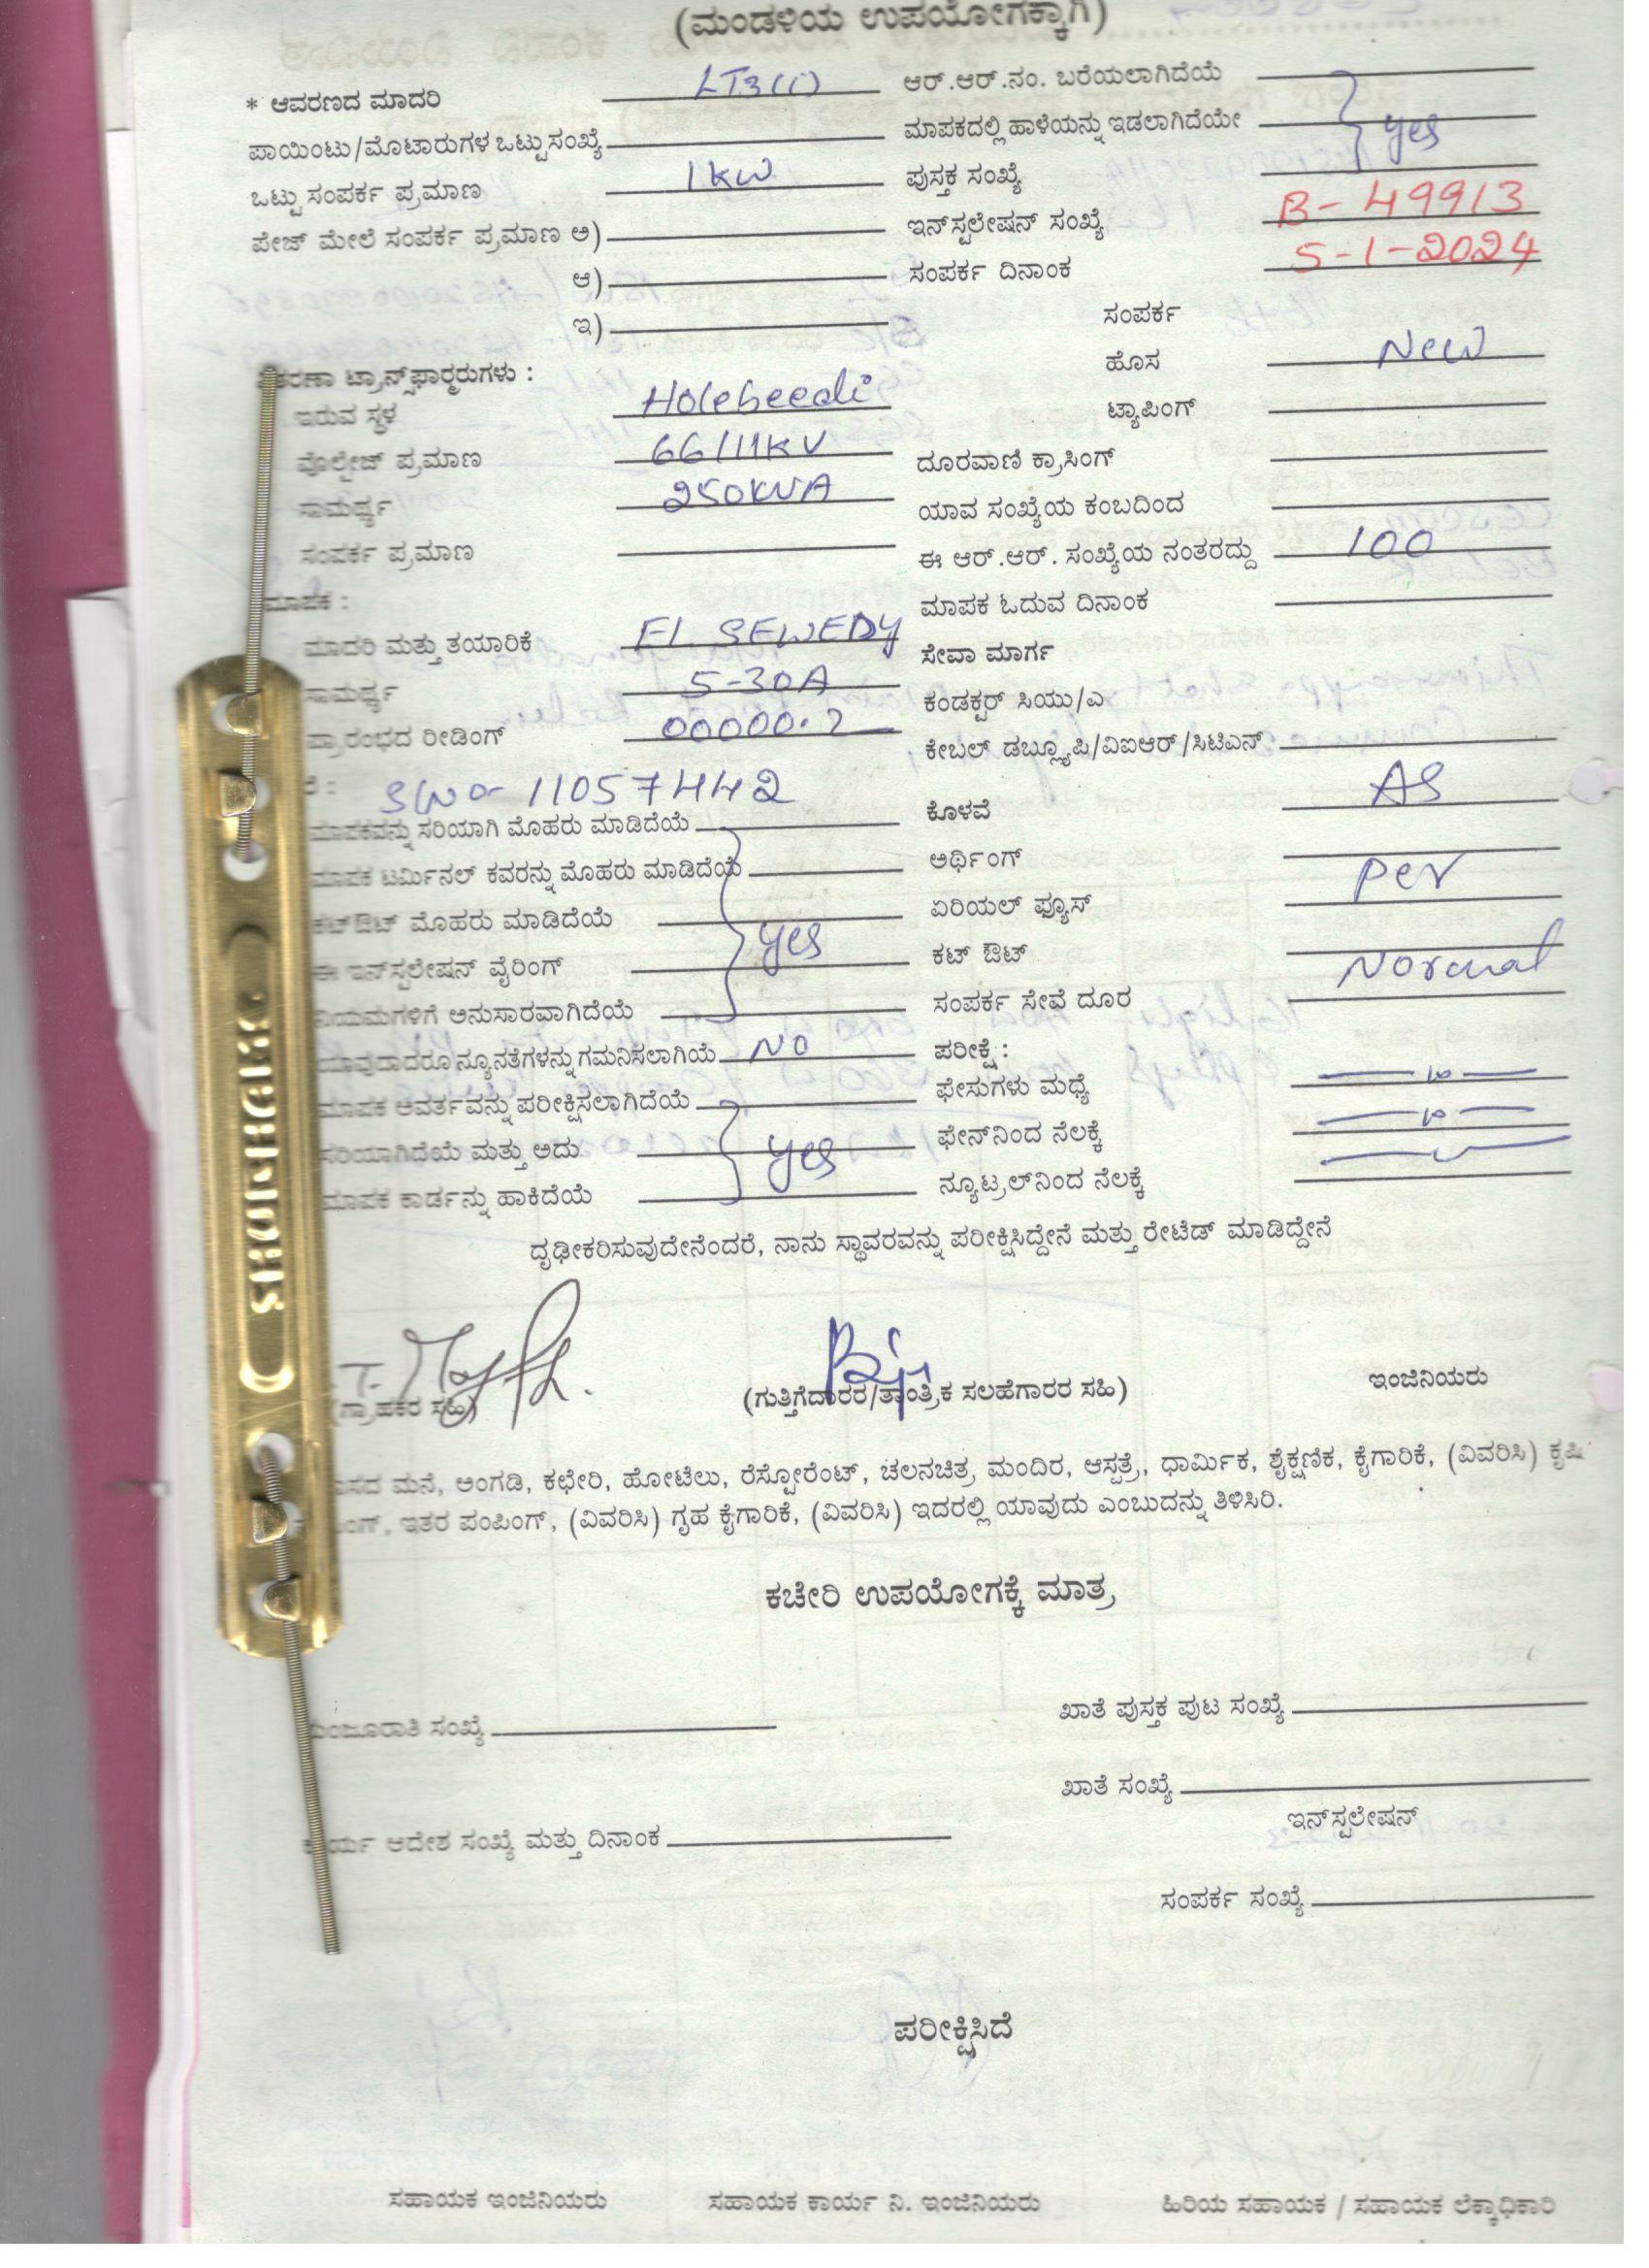 (ಮಂಡಳಿಯ ಉಪಯೋಗಕ್ಕಾಗಿ)
* ಆವರಣದ ಮಾದರಿ LT3(i)
ಪಾಯಿಂಟು/ಮೊಟಾರುಗಳ ಒಟ್ಟು ಸಂಖ್ಯೆ
ಒಟ್ಟು ಸಂಪರ್ಕ ಪ್ರಮಾಣ 1KW
ಪೇಜ್ ಮೇಲೆ ಸಂಪರ್ಕ ಪ್ರಮಾಣ ಅ)
ಆ)
ಇ)
ಟ್ರಾನ್ಸ್‌ಫಾರ್ಮರುಗಳು :
ಇರುವ ಸ್ಥಳ Holebeedi
ವೊಲ್ಟೇಜ್ ಪ್ರಮಾಣ 66/11KV
ಸಾಮರ್ಥ್ಯ 250KVA
ಸಂಪರ್ಕ ಪ್ರಮಾಣ
ಮಾಪಕ :
ಮಾದರಿ ಮತ್ತು ತಯಾರಿಕೆ EL SEWEDY
ಸಾಮರ್ಥ್ಯ 5-30A
ಪ್ರಾರಂಭದ ರೀಡಿಂಗ್ 00000.2
11057442
ಮಾಪಕವನ್ನು ಸರಿಯಾಗಿ ಮೊಹರು ಮಾಡಿದೆಯೆ
ಮಾಪಕ ಟರ್ಮಿನಲ್ ಕವರನ್ನು ಮೊಹರು ಮಾಡಿದೆಯೆ
ಕಟ್‌ಔಟ್ ಮೊಹರು ಮಾಡಿದೆಯೆ yes
ಈ ಇನ್‌ಸ್ಟಲೇಷನ್ ವೈರಿಂಗ್
ನಿಯಮಗಳಿಗೆ ಅನುಸಾರವಾಗಿದೆಯೆ
ಯಾವುದಾದರೂ ನ್ಯೂನತೆಗಳನ್ನು ಗಮನಿಸಲಾಗಿಯೆ NO
ಮಾಪಕ ಆವರ್ತವನ್ನು ಪರೀಕ್ಷಿಸಲಾಗಿದೆಯೆ
ಸರಿಯಾಗಿದೆಯೆ ಮತ್ತು ಅದು yes
ಮಾಪಕ ಕಾರ್ಡನ್ನು ಹಾಕಿದೆಯೆ
ಆರ್.ಆರ್.ನಂ. ಬರೆಯಲಾಗಿದೆಯೆ
ಮಾಪಕದಲ್ಲಿ ಹಾಳೆಯನ್ನು ಇಡಲಾಗಿದೆಯೇ yes
ಪುಸ್ತಕ ಸಂಖ್ಯೆ
ಇನ್‌ಸ್ಟಲೇಷನ್ ಸಂಖ್ಯೆ B-49913
ಸಂಪರ್ಕ ದಿನಾಂಕ 5-1-2024
ಸಂಪರ್ಕ
ಹೊಸ New
ಟ್ಯಾಪಿಂಗ್
ದೂರವಾಣಿ ಕ್ರಾಸಿಂಗ್
ಯಾವ ಸಂಖ್ಯೆಯ ಕಂಬದಿಂದ
ಈ ಆರ್.ಆರ್. ಸಂಖ್ಯೆಯ ನಂತರದ್ದು 100
ಮಾಪಕ ಓದುವ ದಿನಾಂಕ
ಸೇವಾ ಮಾರ್ಗ
ಕಂಡಕ್ಟರ್ ಸಿಯು/ಎ
ಕೇಬಲ್ ಡಬ್ಲ್ಯೂಪಿ/ವಿಐಆರ್/ಸಿಟಿಎಸ್
ಕೊಳವೆ AS
ಅರ್ಥಿಂಗ್
ಏರಿಯಲ್ ಫ್ಯೂಸ್ per
ಕಟ್ ಔಟ್
ಸಂಪರ್ಕ ಸೇವೆ ದೂರ Normal
ಪರೀಕ್ಷೆ :
ಫೇಸುಗಳು ಮಧ್ಯೆ
ಫೇನ್‌ನಿಂದ ನೆಲಕ್ಕೆ
ನ್ಯೂಟ್ರಲ್‌ನಿಂದ ನೆಲಕ್ಕೆ
ದೃಢೀಕರಿಸುವುದೇನೆಂದರೆ, ನಾನು ಸ್ಥಾವರವನ್ನು ಪರೀಕ್ಷಿಸಿದ್ದೇನೆ ಮತ್ತು ರೇಟೆಡ್ ಮಾಡಿದ್ದೇನೆ
(ಗ್ರಾಹಕರ ಸಹಿ) (ಗುತ್ತಿಗೆದಾರರ/ತಾಂತ್ರಿಕ ಸಲಹೆಗಾರರ ಸಹಿ) ಇಂಜಿನಿಯರು
ಮನೆ, ಅಂಗಡಿ, ಕಛೇರಿ, ಹೋಟೆಲು, ರೆಸ್ಟೋರೆಂಟ್, ಚಲನಚಿತ್ರ ಮಂದಿರ, ಆಸ್ಪತ್ರೆ, ಧಾರ್ಮಿಕ, ಶೈಕ್ಷಣಿಕ, ಕೈಗಾರಿಕೆ, (ವಿವರಿಸಿ) ಕೃಷಿ
ಇತರ ಪಂಪಿಂಗ್, (ವಿವರಿಸಿ) ಗೃಹ ಕೈಗಾರಿಕೆ, (ವಿವರಿಸಿ) ಇದರಲ್ಲಿ ಯಾವುದು ಎಂಬುದನ್ನು ತಿಳಿಸಿರಿ.
ಕಚೇರಿ ಉಪಯೋಗಕ್ಕೆ ಮಾತ್ರ
ಮಂಜೂರಾತಿ ಸಂಖ್ಯೆ ಖಾತೆ ಪುಸ್ತಕ ಪುಟ ಸಂಖ್ಯೆ
ಖಾತೆ ಸಂಖ್ಯೆ
ಇನ್‌ಸ್ಟಲೇಷನ್
ಕಾರ್ಯ ಆದೇಶ ಸಂಖ್ಯೆ ಮತ್ತು ದಿನಾಂಕ
ಸಂಪರ್ಕ ಸಂಖ್ಯೆ
ಪರೀಕ್ಷಿಸಿದೆ
ಸಹಾಯಕ ಇಂಜಿನಿಯರು ಸಹಾಯಕ ಕಾರ್ಯ ನಿ. ಇಂಜಿನಿಯರು ಹಿರಿಯ ಸಹಾಯಕ / ಸಹಾಯಕ ಲೆಕ್ಕಾಧಿಕಾರಿ